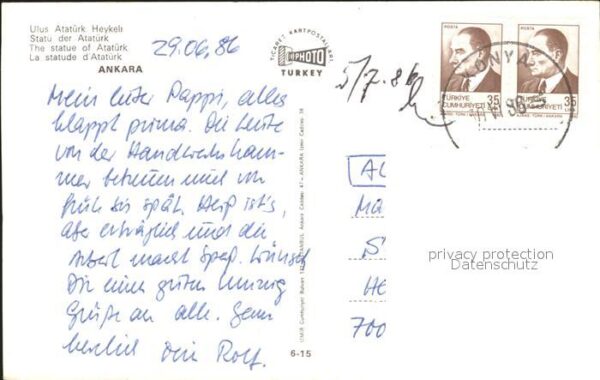 Ulus Atatürk Heykeli
Statu der Atatürk
The statue of Atatürk
La statude d'Atatürk
ANKARA
29.06.86
TICARET KARTPOSTALLARI
PHOTO
TURKEY
5/7.86
POSTA
POSTA
KONYA
35
35
TÜRKİYE
CUMHURİYETİ
TÜRKİYE
CUMHURİYETİ
Mein lieber Pappi, alles
klappt prima. Die Leute
von der Handwerkskam-
mer betreuen mich von
früh bis spät. Heiß ist's,
aber erträglich und die
Arbeit macht Spaß. Wünsche
Dir einen guten Umzug
Grüße an alle. Ganz
herzlich Dein Rolf.
6-15
AL
Ma
S
He
700
privacy protection
Datenschutz